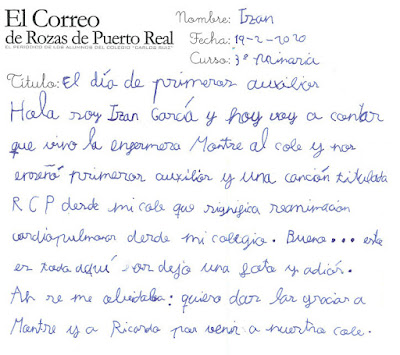 El Correo
de Rozas de Puerto Real
EL PERIÓDICO DE LOS ALUMNOS DEL COLEGIO "CARLOS RUIZ"
Nombre: Izan
Fecha: 19-2-2020
Curso: 3º primaria
Título: El día de primeros auxilios
Hola soy Izan García y hoy voy a contar
que vino la enfermera Montse al cole y nos
enseñó primeros auxilios y una canción titulada
R C P desde mi cole que significa reanimación
cardiopulmonar desde mi colegio. Bueno... este
es todo aquí os dejo una foto y adiós.
Ah se me olvidaba: quiero dar las gracias a
Montse y a Ricardo por venir a nuestro cole.